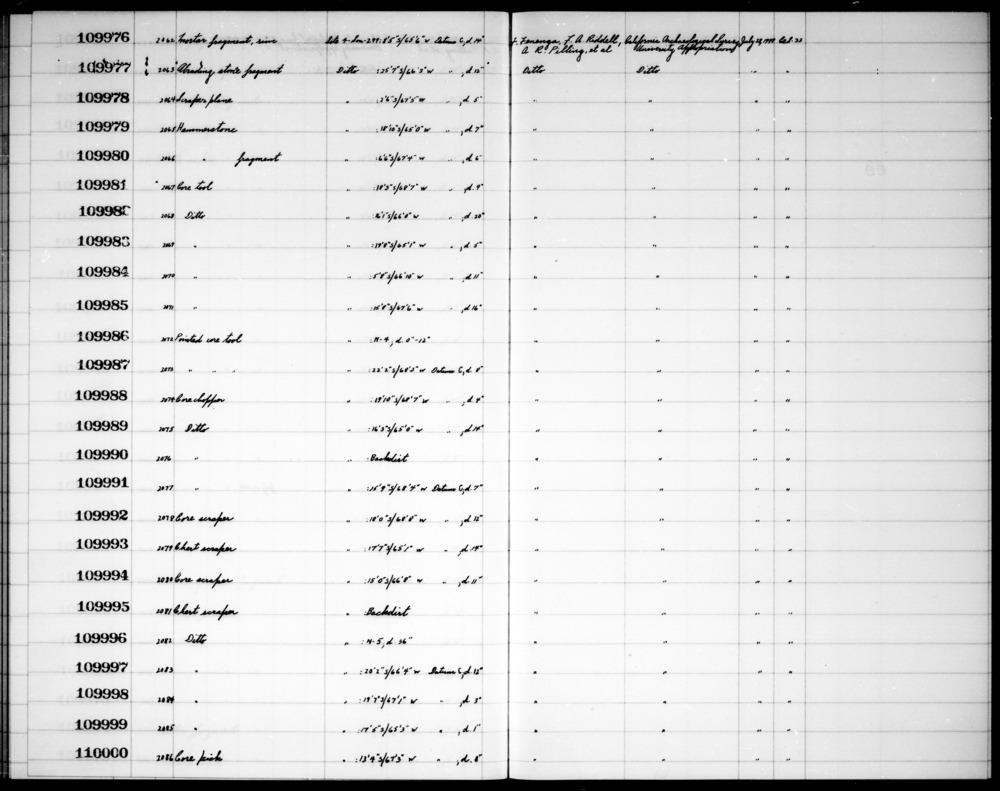 109976 2062 Mortar fragment, rim Site 4-Lan-299: 8'5"S/65'6" W Datum C, d. 14" F. Fenenga, F. A. Riddell, California Archaeological Survey, July 28, Col. 23
A. R. Pilling, et al University Appropriation
109977 2063 Abrading stone fragment Ditto :25'7"S/66'3" W " , d. 12" Ditto Ditto " "
109978 2064 Scraper plane " :2'6"S/67'5" W " , d. 5" " " " "
109979 2065 Hammerstone " :18'10"S/65'0" W " , d. 7" " " " "
109980 2066 " fragment " :6'6"S/67'4" W " , d. 6" " " " "
109981 2067 Core tool " :10'5"S/68'7" W " , d. 9" " " " "
10998 2068 Ditto " :16'1"S/66'0" W " , d. 20" " " " "
109983 2069 " " :19'8"S/65'1" W " , d. 5" " " " "
109984 2070 " " :5'8"S/66'10" W " , d. 11" " " " "
109985 2071 " " :15'8"S/67'6" W " , d. 16" " " " "
109986 2072 Pointed core tool " :H-4, d. 0"-12" " " " "
109987 2073 " " " " :22'2"S/68'5" W Datum C, d. 8" " " " "
109988 2074 Core chopper " :19'10"S/68'7" W " , d. 4" " " " "
109989 2075 Ditto " :16'5"S/65'0" W " , d. 14" " " " "
109990 2076 " " :Backdirt " " " "
109991 2077 " " :25'9"S/68'4" W Datum C, d. 7" " " " "
109992 2078 Core scraper " :18'0"S/68'8" W " , d. 12" " " " "
109993 2079 Chert scraper " :17'7"S/65'1" W " , d. 14" " " " "
109994 2080 Core scraper " :15'0"S/66'8" W " , d. 11" " " " "
109995 2081 Chert scraper " :Backdirt " " " "
109996 2082 Ditto " :H-5, d. 36" " " " "
109997 2083 " " :20'2"S/66'4" W Datum C, d. 12" " " " "
109998 2084 " " :19'7"S/67'1" W " , d. 3" " " " "
109999 2085 " " :17'5"S/65'3" W " , d. 1" " " " "
110000 2086 Core pick " :13'4"S/67'5" W " , d. 8" " " " "